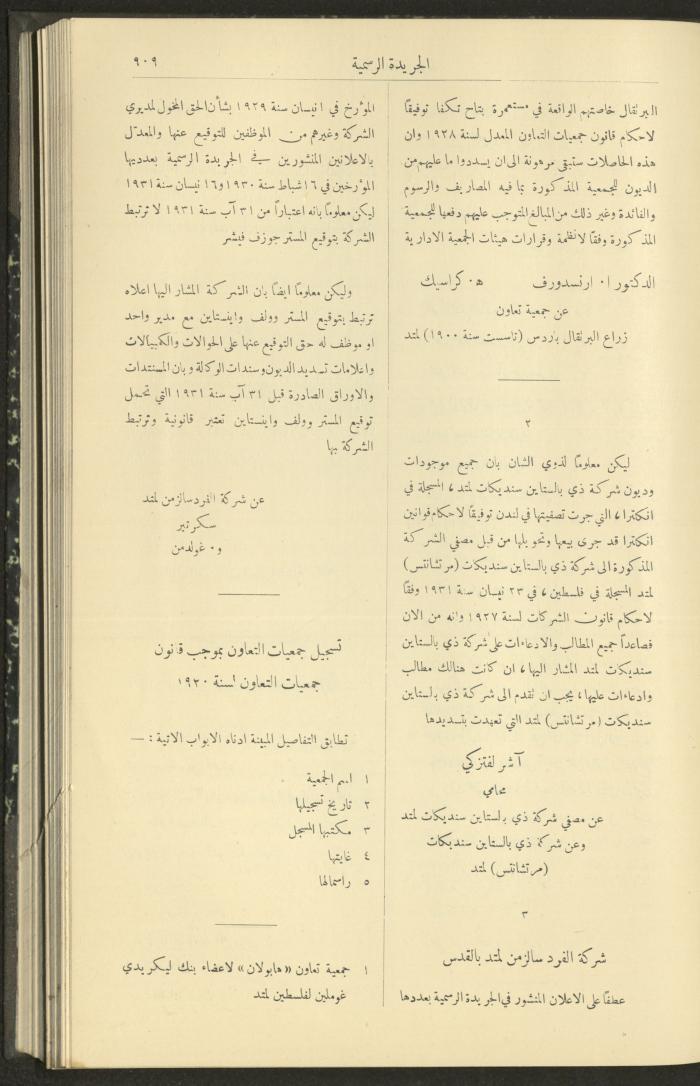 الجريدة الرسمية
٩٠٩
البرتقال خاصتهم الواقعة في مستعمرة بتاح تكفا توفيقًا
لاحكام قانون جمعيات التعاون المعدل لسنة ١٩٢٨ وان
هذه الحاصلات ستبقى مرهونة الى ان يسددوا ما عليهم من
الديون للجمعية المذكورة بما فيه المصاريف والرسوم
والفائدة وغير ذلك من المبالغ المتوجب عليهم دفعها للجمعية
المذكورة وفقًا لانظمة وقرارات هيئات الجمعية الادارية
الدكتور ا٠ ارنسدورف ه٠ كراسيك
عن جمعية تعاون
زراع البرتقال باردس (تاسست سنة ١٩٠٠) لمتد
٢
ليكن معلومًا لذوي الشان بان جميع موجودات
وديون شركة ذي بالستاين سنديكات لمتد، المسجلة في
انكلترا، التي جرت تصفيتها في لندن توفيقًا لاحكام قوانين
انكلترا قد جرى بيعها وتحويلها من قبل مصفي الشركة
المذكورة الى شركة ذي بالستاين سنديكات (مرتشانتس)
لمتد المسجلة في فلسطين، في ٢٣ نيسان سنة ١٩٣١ وفقًا
لاحكام قانون الشركات لسنة ١٩٢٧ وانه من الان
فصاعداً جميع المطالب والادعاءات على شركة ذي بالستاين
سنديكات لمتد المشار اليها، ان كانت هنالك مطالب
وادعاءات عليها، يجب ان تقدم الى شركة ذي بالستاين
سنديكات (مرتشانتس) لمتد التي تعهدت بتسديدها
آشر لفتزكي
محامي
عن مصفي شركة ذي بالستاين سنديكات لمتد
وعن شركة ذي بالستاين سنديكات
(مرتشانتس) لمتد
٣
شركة الفرد سالزمن لمتد بالقدس
عطفًا على الاعلان المنشور في الجريدة الرسمية بعددها
المؤرخ في ١ نيسان سنة ١٩٢٩ بشأن الحق المخول لمديري
الشركة وغيرهم من الموظفين للتوقيع عنها والمعدل
بالاعلانين المنشورين في الجريدة الرسمية بعدديها
المؤرخين في ١٦ شباط سنة ١٩٣٠ و١٦ نيسان سنة ١٩٣١
ليكن معلومًا بانه اعتباراً من ٣١ آب سنة ١٩٣١ لا ترتبط
الشركة بتوقيع المستر جوزف فيشر
وليكن معلومًا ايضًا بان الشركة المشار اليها اعلاه
ترتبط بتوقيع المستر وولف واينستاين مع مدير واحد
او موظف له حق التوقيع عنها على الحوالات والكمبيالات
واعلامات تسديد الديون وسندات الوكالة وبان المستندات
والاوراق الصادرة قبل ٣١ آب سنة ١٩٣١ التي تحمل
توقيع المستر وولف واينستاين تعتبر قانونية وترتبط
الشركة بها
عن شركة الفرد سالزمن لمتد
سكرتير
و٠ غولدمن
تسجيل جمعيات التعاون بموجب قانون
جمعيات التعاون لسنة ١٩٢٠
تطابق التفاصيل المبينة ادناه الابواب الاتية : —
١ اسم الجمعية
٢ تاريخ تسجيلها
٣ مكتبها المسجل
٤ غايتها
٥ راسمالها
١ جمعية تعاون «هابولان» لاعضاء بنك ليكريدي
غوملين لفلسطين لمتد